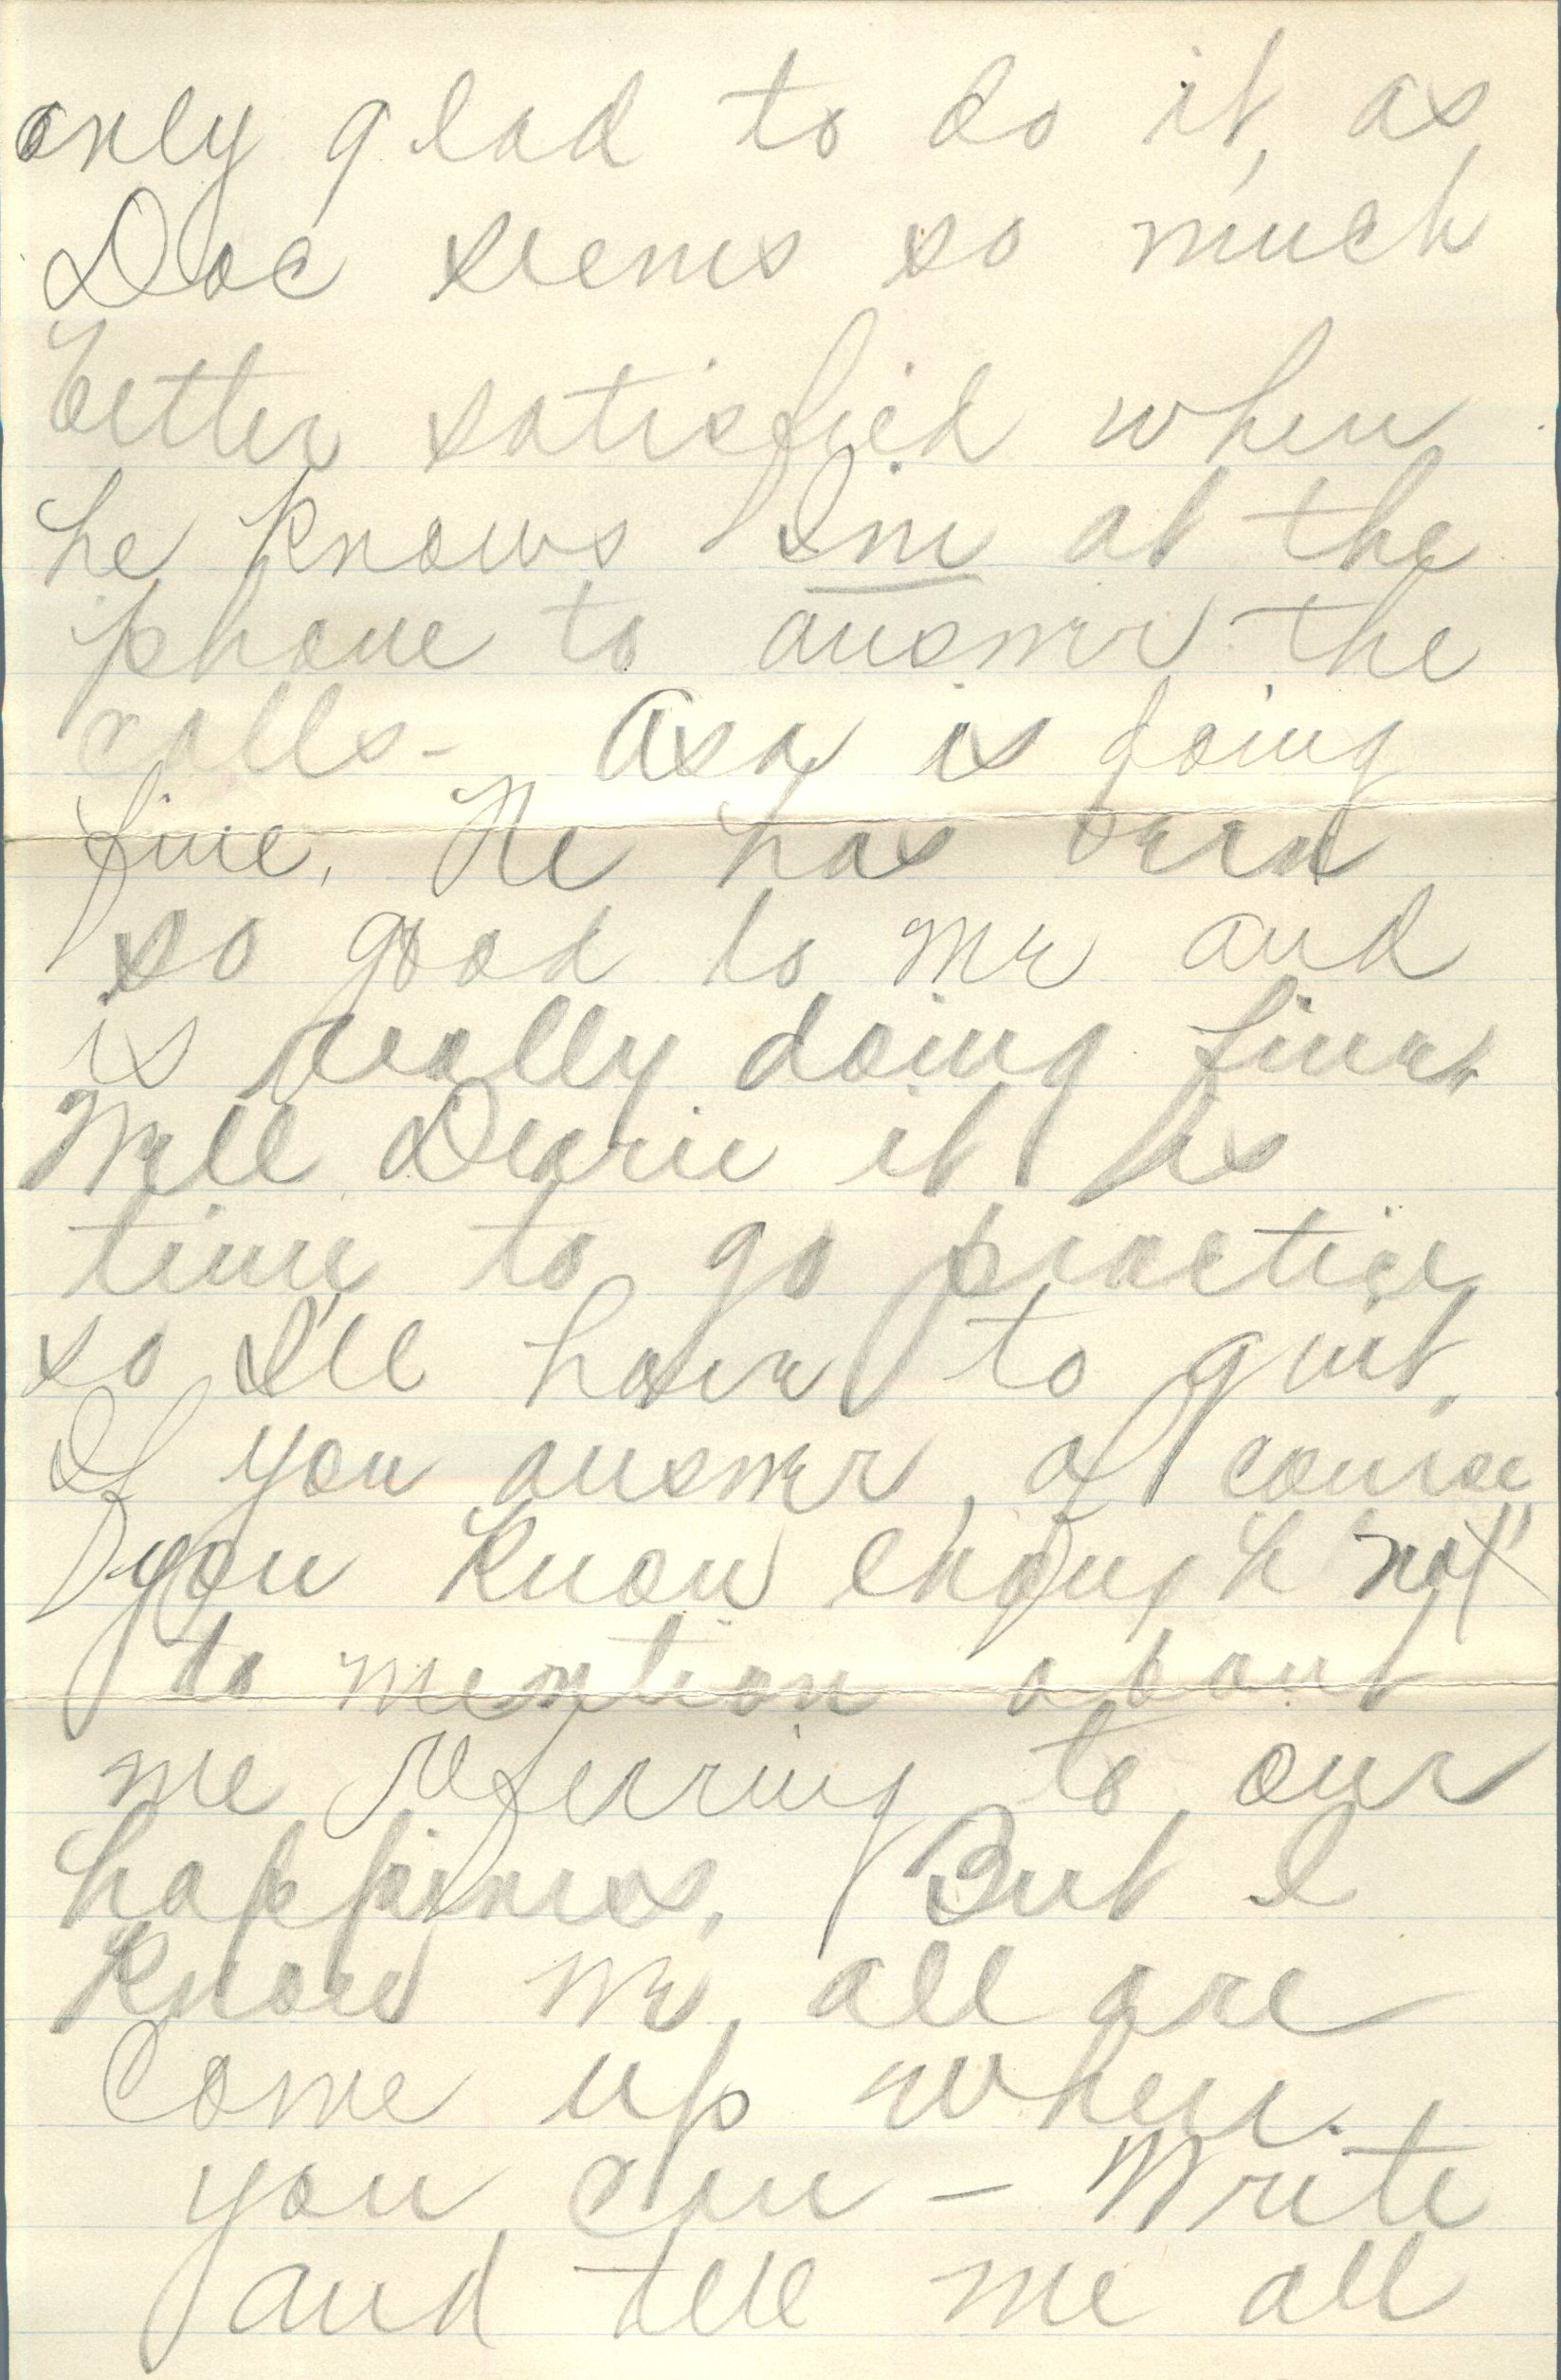 only glad to do it, as
Doc seems so much
better satisfied when
he knows I'm at the
phone to answer the
calls - Asa is doing
fine. He has been
so good to me and
is really doing fine.
Well Dearie it is
time to go practice
so I'll have to quit.
If you answer, of course
you know enough "not"
to mention about
me referring to our
happiness. But I
know we all are
Come up when
you can - Write
and tell me all